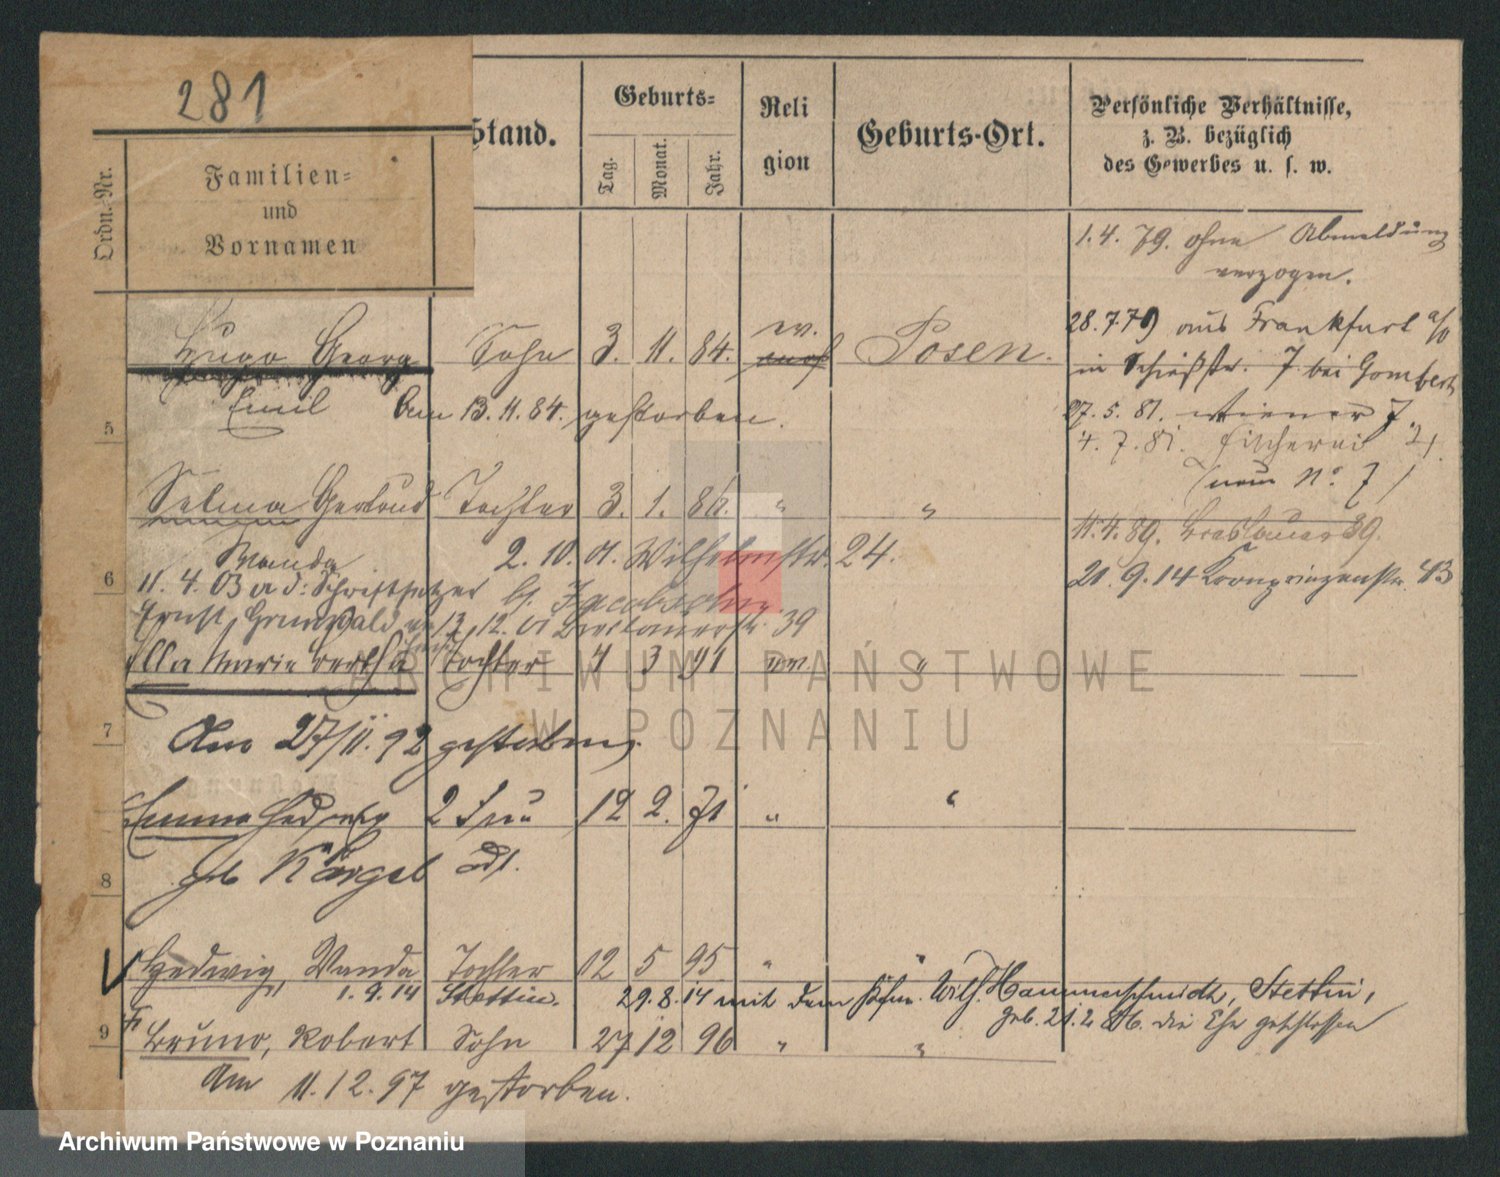 281
Ordn.-Nr.
Familien-
und
Vornamen
Stand.
Geburts-
Tag.
Monat.
Jahr.
Reli
gion
Geburts-Ort.
Persönliche Verhältnisse,
z. B. bezüglich
des Gewerbes u. s. w.
1.4.79. ohne Abmeldung
verzogen.
28.7.79 aus Frankfurt a/O
in Schießstr. 7 bei Gombert
27.5.81. Wiener 7
4.7.81. Fischerei 21
(neue No. 7)
11.4.89. Breslauer 39.
21.9.14 Kronprinzenstr. 43
Hugo Georg Sohn 3. 11. 84. ev. Posen.
Emil Am 13.11.84. gestorben.
5
Selma Gertrud Tochter 3. 1. 86. " "
Wanda 2.10.01. Wilhelmstr. 24.
6
11.4.03 a d: Schriftsetzer bj. Jacobsohn
Ernst Grunwald 13.12.01 Breslauerstr. 39
Ella Marie Bertha Tochter 4 3 91 ev. "
7
Am 27/11.92 gestorben.
Emma Hedwig 2 Frau 12 2. 71 " "
geb Körgel
8
Hedwig, Wanda Tochter 12 5 95 " "
1.9.14 Stettin. 29.8.14 mit dem Kfm. Wilh. Hammerschmidt, Stettin,
geb. 21.2.86. die Ehe geschlossen
9
Bruno, Robert Sohn 27 12 96 " "
Am 11.12.97 gestorben.
ARCHIWUM PAŃSTWOWE
W POZNANIU
Archiwum Państwowe w Poznaniu